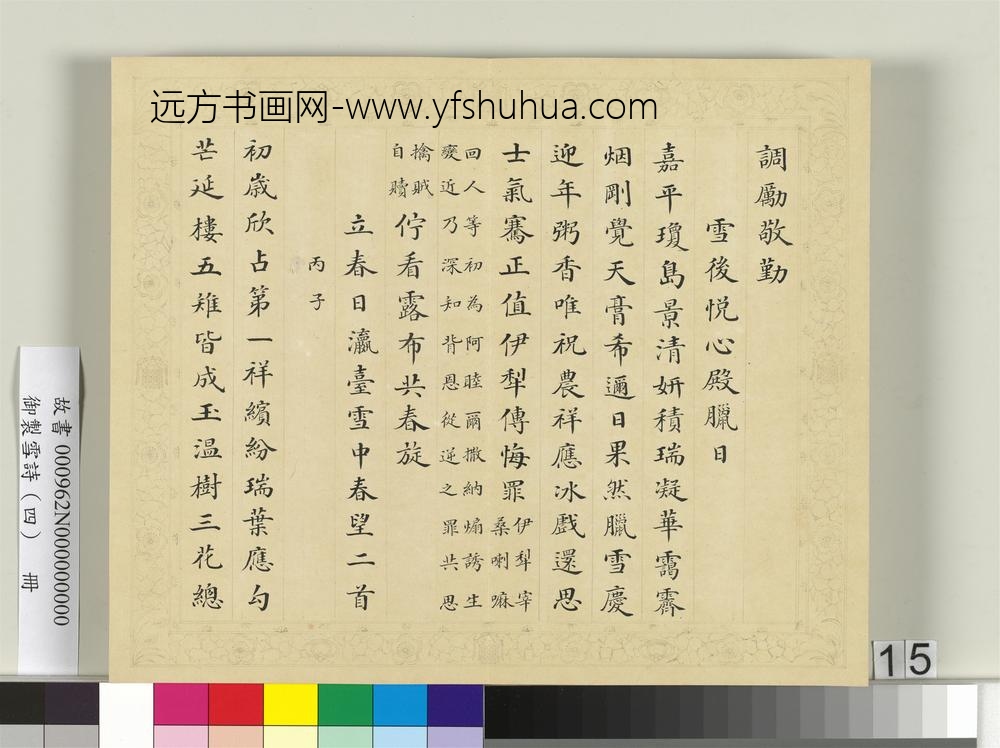 远方书画网-www.yfshuhua.com
調勵敬勤
雪後悦心殿臘日
嘉平瓊島景清妍積瑞凝華靄霽
烟剛覺天膏希邇日果然臘雪慶
迎年粥香唯祝農祥應冰戲還思
士氣騫正值伊犁傳悔罪
伊犁宰
桑喇嘛
回人等初為阿睦爾撒納煽誘生
變近乃深知背恩從逆之罪共思
擒賊
自贖
佇看露布共春旋
立春日瀛臺雪中春望二首
丙子
初歲欣占第一祥繽紛瑞葉應勾
芒延樓五雉皆成玉温樹三花總
故書 000962N000000000
御製雪詩（四） 冊
15